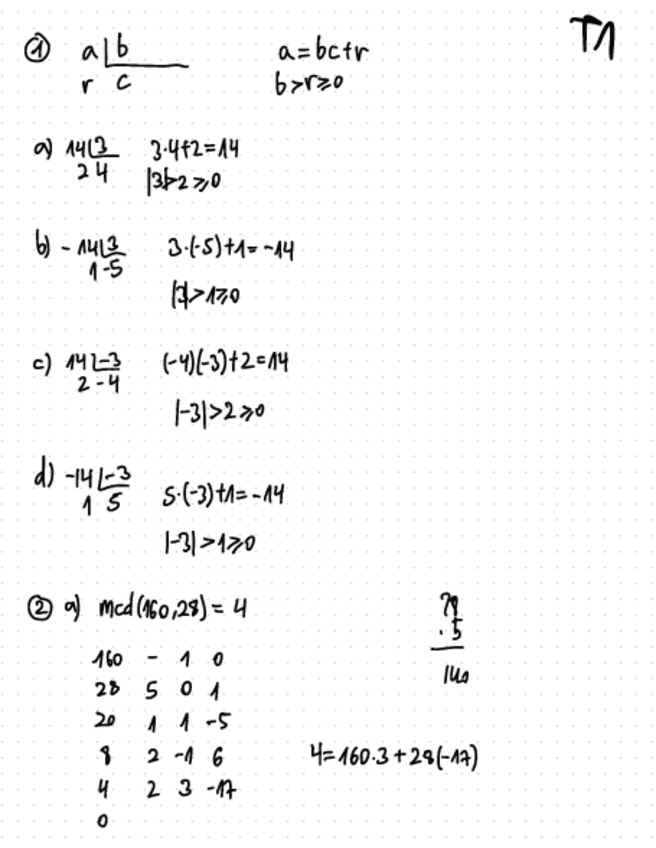 T1
① a | b a = bc+r
r c b>r≥0
a) 14 | 3 3·4+2=14
2 4 |3|>2≥0
b) -14 | 3 3·(-5)+1=-14
1 -5 |3|>1≥0
c) 14 | -3 (-4)(-3)+2=14
2 -4 |-3|>2≥0
d) -14 | -3 5·(-3)+1=-14
1 5 |-3|>1≥0
② a) mcd(160,28)=4
·5
140
160 - 1 0
28 5 0 1
20 1 1 -5
8 2 -1 6 4=160·3+28(-17)
4 2 3 -17
0